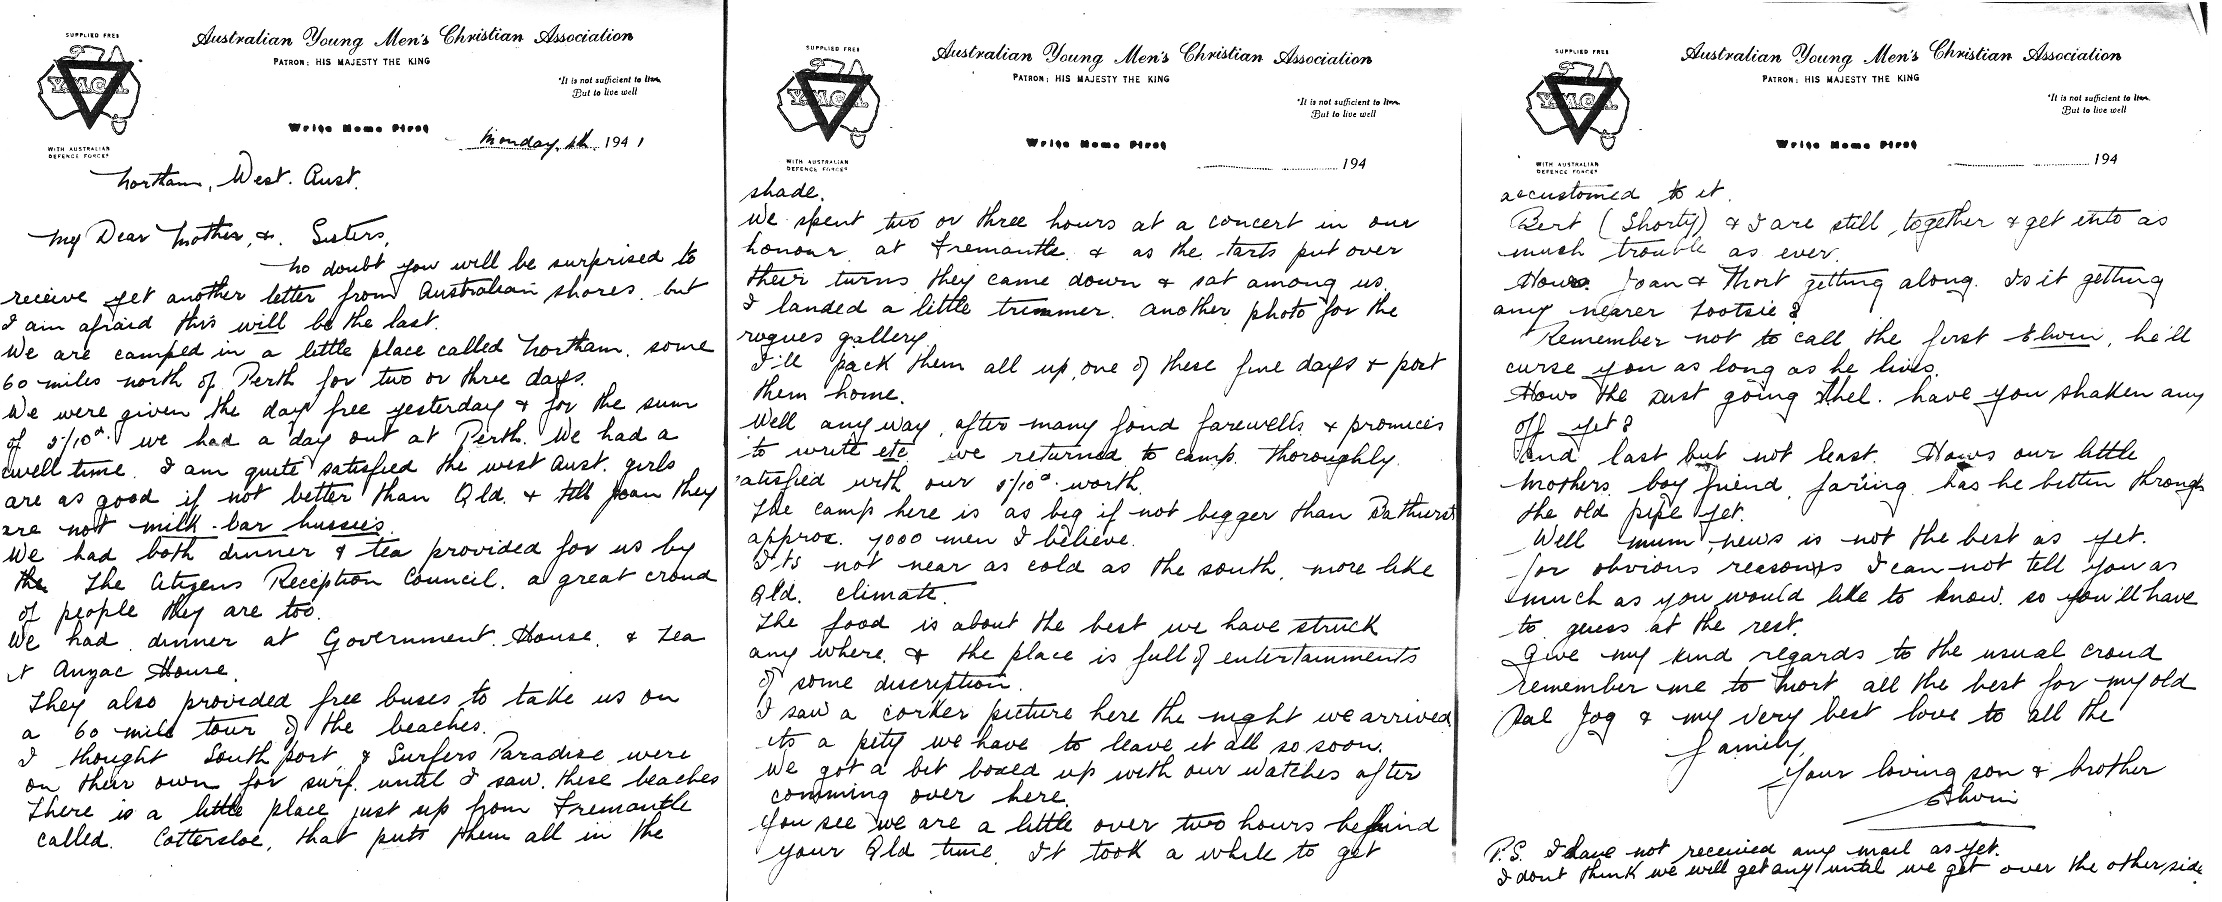 SUPPLIED FREE
Australian Young Men's Christian Association
PATRON: HIS MAJESTY THE KING
Y.M.C.A.
"It is not sufficient to live,
But to live well
Write Home First
Monday, 4th, 1941
WITH AUSTRALIAN
DEFENCE FORCES
Northam, West. Aust.
My Dear Mother, &. Sisters,
No doubt you will be surprised to
receive yet another letter from Australian shores. but
I am afraid this will be the last.
We are camped in a little place called Northam. some
60 miles north of Perth for two or three days.
We were given the day free yesterday & for the sum
of 5/10d. we had a day out at Perth. We had a
swell time. I am quite satisfied the west Aust. girls
are as good if not better than Qld. & tell Joan they
are not milk-bar hussies.
We had both dinner & tea provided for us by
the The Citizens Reception Council. a great croud
of people they are too.
We had dinner at Government House. & tea
at Anzac House.
They also provided free buses to take us on
a 60 mile tour of the beaches.
I thought South port & Surfers Paradise were
on their own for surf. until I saw these beaches
There is a little place just up from Fremantle
called. Cottersloe, that puts them all in the
SUPPLIED FREE
Australian Young Men's Christian Association
PATRON: HIS MAJESTY THE KING
Y.M.C.A.
"It is not sufficient to live,
But to live well
Write Home First
194
WITH AUSTRALIAN
DEFENCE FORCES
shade.
We spent two or three hours at a concert in our
honour at Fremantle & as the tarts put over
their turns they came down & sat among us.
I landed a little trimmer. Another photo for the
rogues gallery.
I'll pack them all up, one of these fine days & post
them home.
Well any way, after many fond farewells & promices
to write etc. we returned to camp. thoroughly
satisfied with our 5/10d. worth.
The camp here is as big if not bigger than Bathurst
approx. 7000 men I believe.
It's not near as cold as the south, more like
Qld. climate.
The food is about the best we have struck
any where. & the place is full of entertainments
of some discription.
I saw a corker picture here the night we arrived
its a pity we have to leave it all so soon.
We got a bit boxed up with our watches after
comming over here.
You see we are a little over two hours behind
your Qld time. It took a while to get
SUPPLIED FREE
Australian Young Men's Christian Association
PATRON: HIS MAJESTY THE KING
Y.M.C.A.
"It is not sufficient to live,
But to live well
Write Home First
194
WITH AUSTRALIAN
DEFENCE FORCES
accustomed to it.
Bert (Shorty) & I are still together & get into as
much trouble as ever.
Hows Joan & Mort getting along. Is it getting
any nearer Tootsie?
Remember not to call the first Elwin, he'll
curse you as long as he lives.
Hows the dust going Thel. have you shaken any
off yet?
And last but not least. Hows our little
Mothers boy friend, faring has he bitten through
the old pipe yet.
Well mum, news is not the best as yet.
for obvious reasons I can not tell you as
much as you would like to know. so you'll have
to guess at the rest.
Give my kind regards to the usual croud
remember me to Mort all the best for my old
Pal Jog & my very best love to all the
family,
Your loving son & brother
Elwin
P.S. I have not received any mail as yet.
I dont think we will get any until we get over the other side.